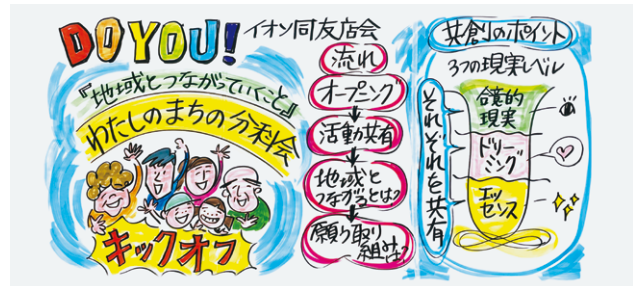 DO YOU!
イオン同友店会
『地域とつながっていくこと』
わたしのまちの分科会
キックオフ
流れ
オープニング
活動共有
地域と
つながるとは?
願う取り
組みは?
共創のポイント
3つの現実レベル
それぞれを共有
合意的
現実
ドリー
ミング
エッ
センス